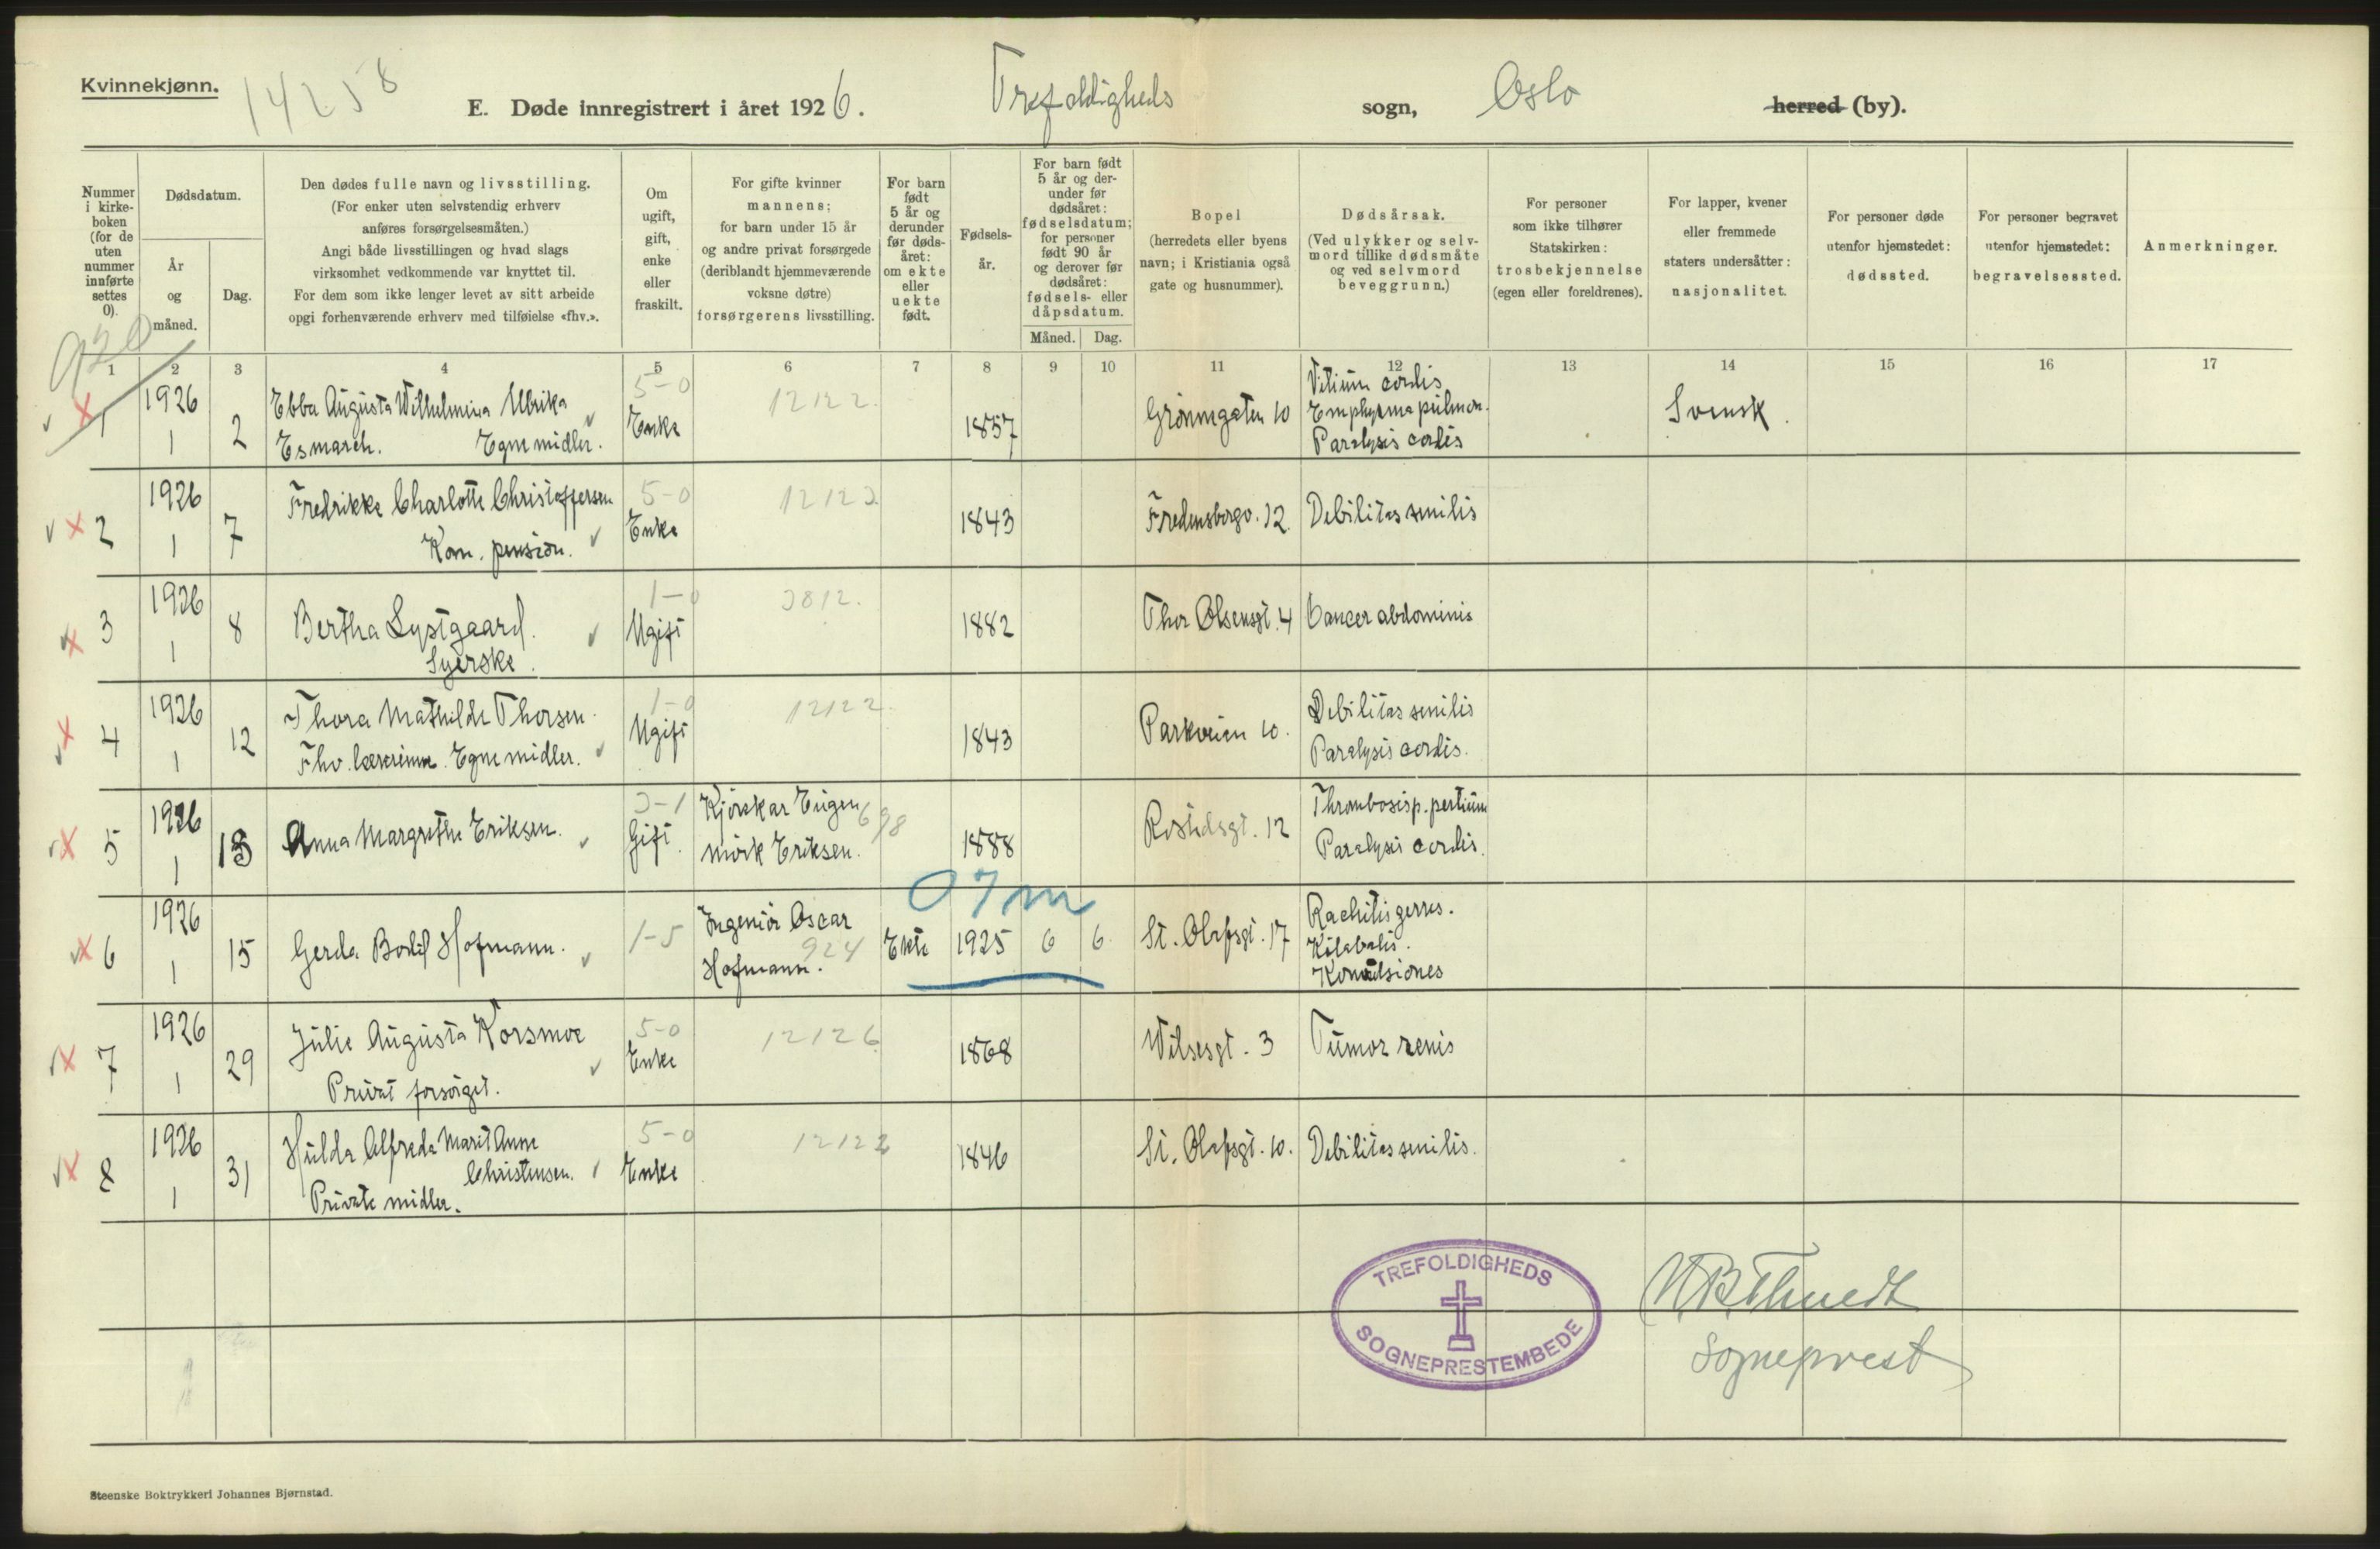 Kvinnekjønn.
14258
E. Døde innregistrert i året 1926. Trefoldigheds sogn, Oslo herred (by).
Nummer i kirke-boken (for de uten nummer innførte settes 0).
Dødsdatum.
År og måned.
Dag.
Den dødes fulle navn og livsstilling.
(For enker uten selvstendig erhverv
anføres forsørgelsesmåten.)
Angi både livsstillingen og hvad slags
virksomhet vedkommende var knyttet til.
For dem som ikke lenger levet av sitt arbeide
opgi forhenværende erhverv med tilføielse «fhv.».
Om ugift, gift, enke eller fraskilt.
For gifte kvinner
mannens;
for barn under 15 år
og andre privat forsørgede
(deriblandt hjemmeværende
voksne døtre)
forsørgerens livsstilling.
For barn født 5 år og derunder før døds-året: om ekte eller uekte født.
Fødsels-år.
For barn født 5 år og der-under før dødsåret: fødselsdatum; for personer født 90 år og derover før dødsåret: fødsels- eller dåpsdatum.
Måned. Dag.
Bopel
(herredets eller byens
navn; i Kristiania også
gate og husnummer).
Dødsårsak.
(Ved ulykker og selv-
mord tillike dødsmåte
og ved selvmord
beveggrunn.)
For personer
som ikke tilhører
Statskirken:
trosbekjennelse
(egen eller foreldrenes).
For lapper, kvener
eller fremmede
staters undersåtter:
nasjonalitet.
For personer døde
utenfor hjemstedet:
dødssted.
For personer begravet
utenfor hjemstedet:
begravelsessted.
Anmerkninger.
920
1 2 3 4 5 6 7 8 9 10 11 12 13 14 15 16 17
1 1926 1 2 Ebba Augusta Wilhelmina Ulrika
Esmarch. Egne midler. 5-0 Enke 12122. 1857 Grønnegaten 10 Vitium cordis
Emphysema pulmon.
Paralysis cordis Svensk.
2 1926 1 7 Fredrikke Charlotte Christoffersen
Kom. pension. 5-0 Enke 12122. 1843 Fredensborgv. 12. Debilitas senilis
3 1926 1 8 Bertha Lystgaard.
Syerske. 1-0 Ugift 3812. 1882 Thor Olsensgt. 4 Cancer abdominis
4 1926 1 12 Thora Mathilde Thorsen.
Fhv. lærerinne. Egne midler. 1-0 Ugift 12122 1843 Parkveien 10. Debilitas senilis
Paralysis cordis.
5 1926 1 13 Anna Margrethe Eriksen. 3-1 Gift. Eugen 698
Mörk Eriksen. 1888 12 Thrombosis p. partum
Paralysis cordis.
07m
6 1926 1 15 Gerda Bodil Hofmann. 1-5 Ingeniör Oscar
Hofmann. 924 Ekte 1925 6 6. St. Olafsgt. 17 Rachitis
Konvulsiones
7 1926 1 29 Julie Augusta Korsmoe
Privat forsörget. 5-0 Enke 12126 1868 Wilsesgt. 3 Tumor renis
8 1926 1 31 Hulda Alfreda Marit Anne
Christensen.
Private midler. 5-0 Enke 12122 1846 St. Olafsgt. 10. Debilitas senilis.
TREFOLDIGHEDS
SOGNEPRESTEMBEDE
Sogneprest
Steenske Boktrykkeri Johannes Bjørnstad.